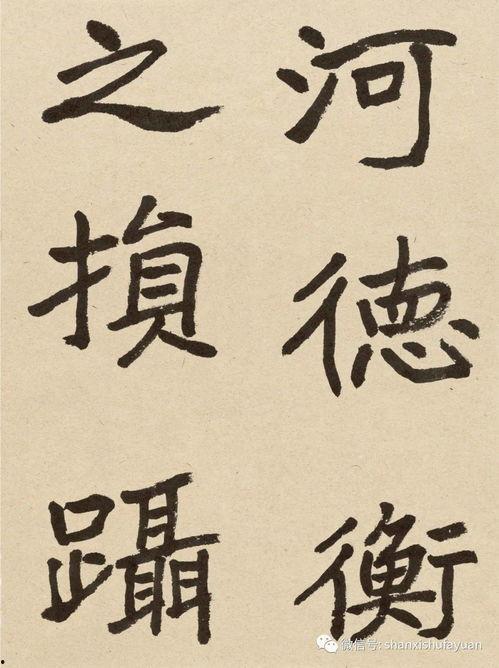 河德衡
之損躡
微信号: shanxishufayuan